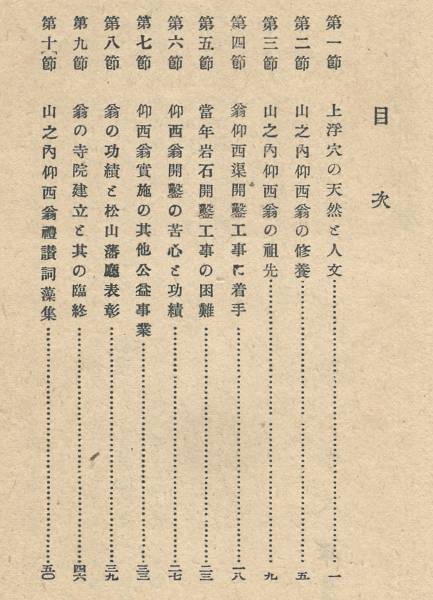 目次
第一節 上浮穴の天然と人文……………………一
第二節 山之內仰西翁の修養……………………五
第三節 山之內仰西翁の祖先……………………九
第四節 翁仰西渠開鑿工事に着手……………………一八
第五節 當年岩石開鑿工事の困難……………………二三
第六節 仰西翁開鑿の苦心と功績……………………二七
第七節 仰西翁實施の其他公益事業……………………三三
第八節 翁の功績と松山藩廳表彰……………………三九
第九節 翁の寺院建立と其の臨終……………………四六
第十節 山之內仰西翁禮讃詞藻集……………………五〇